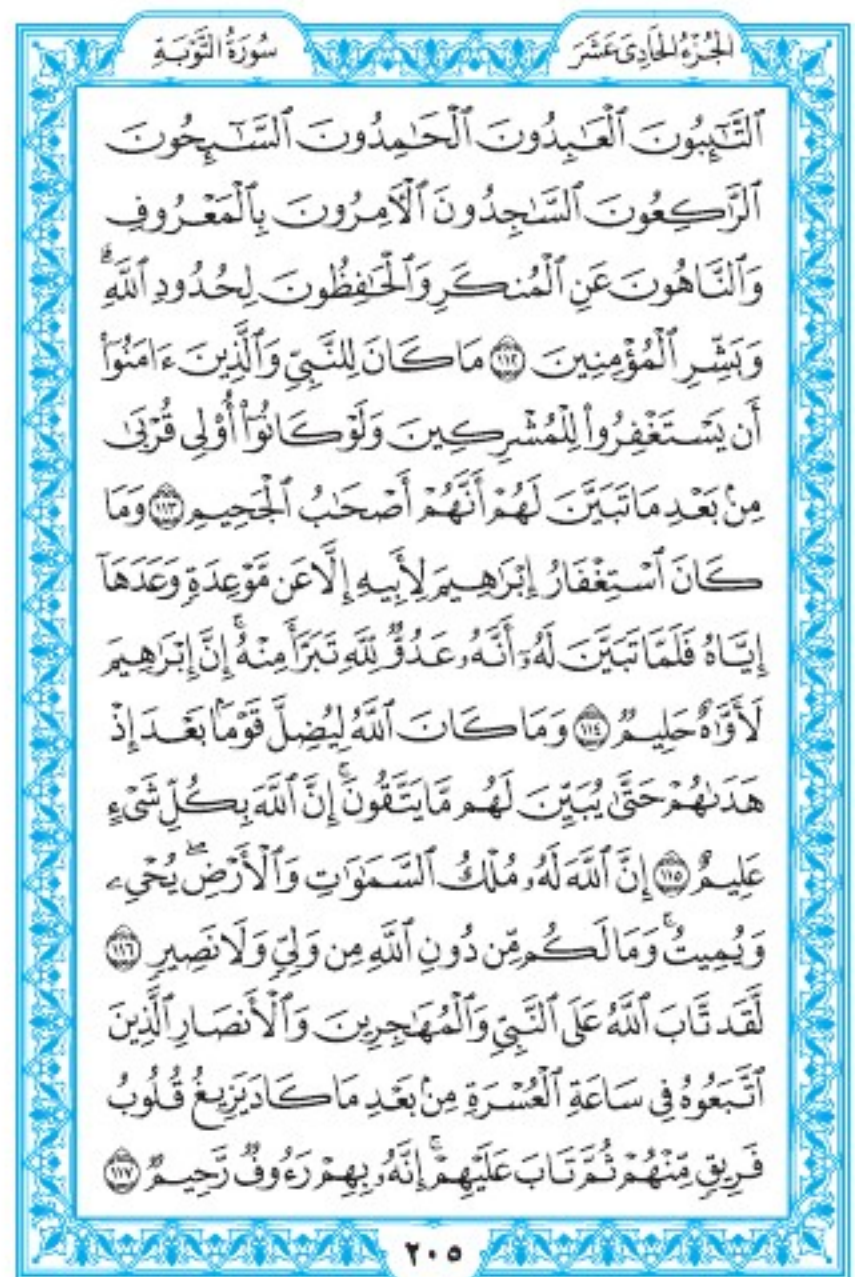 الجُزْءُ الحَادِيَ عَشَرَ
سُورَةُ التَّوْبَةِ
ٱلتَّٰٓئِبُونَ ٱلْعَٰبِدُونَ ٱلْحَٰمِدُونَ ٱلسَّٰٓئِحُونَ
ٱلرَّٰكِعُونَ ٱلسَّٰجِدُونَ ٱلْأٓمِرُونَ بِٱلْمَعْرُوفِ
وَٱلنَّاهُونَ عَنِ ٱلْمُنكَرِ وَٱلْحَٰفِظُونَ لِحُدُودِ ٱللَّهِۗ
وَبَشِّرِ ٱلْمُؤْمِنِينَ ۝١١٢ مَا كَانَ لِلنَّبِيِّ وَٱلَّذِينَ ءَامَنُوٓا۟
أَن يَسْتَغْفِرُوا۟ لِلْمُشْرِكِينَ وَلَوْ كَانُوٓا۟ أُو۟لِى قُرْبَىٰ
مِنۢ بَعْدِ مَا تَبَيَّنَ لَهُمْ أَنَّهُمْ أَصْحَٰبُ ٱلْجَحِيمِ ۝١١٣ وَمَا
كَانَ ٱسْتِغْفَارُ إِبْرَٰهِيمَ لِأَبِيهِ إِلَّا عَن مَّوْعِدَةٍ وَعَدَهَآ
إِيَّاهُ فَلَمَّا تَبَيَّنَ لَهُۥٓ أَنَّهُۥ عَدُوٌّ لِّلَّهِ تَبَرَّأَ مِنْهُۚ إِنَّ إِبْرَٰهِيمَ
لَأَوَّٰهٌ حَلِيمٌ ۝١١٤ وَمَا كَانَ ٱللَّهُ لِيُضِلَّ قَوْمًۢا بَعْدَ إِذْ
هَدَىٰهُمْ حَتَّىٰ يُبَيِّنَ لَهُم مَّا يَتَّقُونَۚ إِنَّ ٱللَّهَ بِكُلِّ شَىْءٍ
عَلِيمٌ ۝١١٥ إِنَّ ٱللَّهَ لَهُۥ مُلْكُ ٱلسَّمَٰوَٰتِ وَٱلْأَرْضِۖ يُحْىِۦ
وَيُمِيتُۚ وَمَا لَكُم مِّن دُونِ ٱللَّهِ مِن وَلِىٍّ وَلَا نَصِيرٍ ۝١١٦
لَّقَد تَّابَ ٱللَّهُ عَلَى ٱلنَّبِىِّ وَٱلْمُهَٰجِرِينَ وَٱلْأَنصَارِ ٱلَّذِينَ
ٱتَّبَعُوهُ فِى سَاعَةِ ٱلْعُسْرَةِ مِنۢ بَعْدِ مَا كَادَ يَزِيغُ قُلُوبُ
فَرِيقٍ مِّنْهُمْ ثُمَّ تَابَ عَلَيْهِمْۚ إِنَّهُۥ بِهِمْ رَءُوفٌ رَّحِيمٌ ۝١١٧
٢٠٥